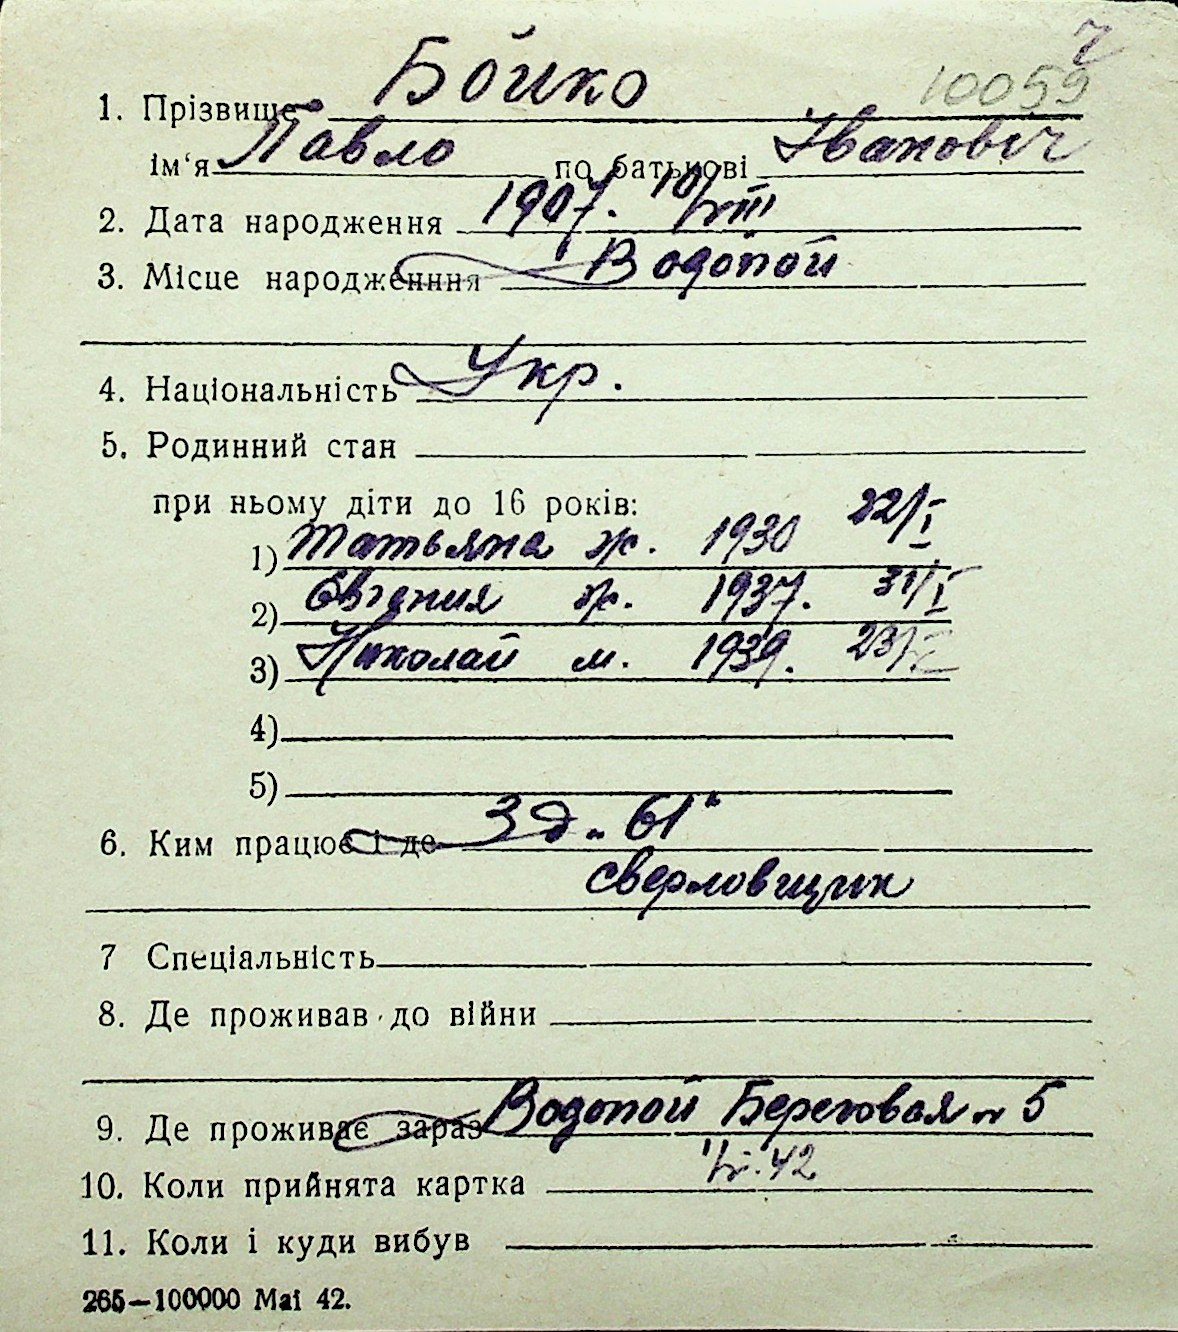 7
10059
1. Прізвище Бойко
ім'я Павло по батькові Івановіч
2. Дата народження 1907. 10/VIII
3. Місце народженння Водопой
4. Національність Укр.
5. Родинний стан
при ньому діти до 16 років:
1) Татьяна ж. 1930 22/I
2) Євгения ж. 1937. 31/I
3) Николай м. 1939. 23/
4)
5)
6. Ким працює і де Зд. „61"
сверловщик
7 Спеціальність
8. Де проживав до війни
9. Де проживає зараз Водопой Береговая № 5
10. Коли прийнята картка 42
11. Коли і куди вибув
265—100000 Маі 42.